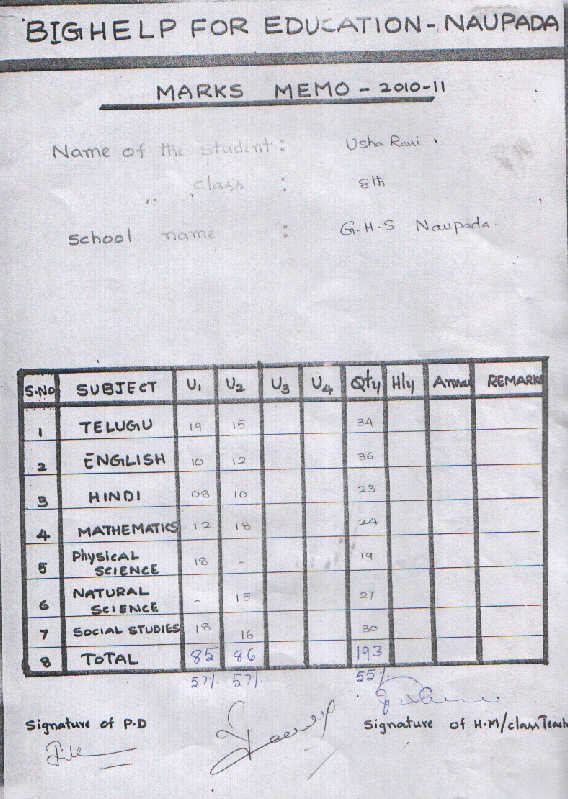 BIGHELP FOR EDUCATION - NAUPADA
MARKS MEMO - 2010-11
Name of the student : Usha Rani
" class : 8th
School name : G.H.S Naupada.
S.NO SUBJECT U1 U2 U3 U4 Qty Hly Annual REMARKS
1 TELUGU 19 15 34
2 ENGLISH 10 12 36
3 HINDI 08 10 23
4 MATHEMATICS 12 18 24
5 Physical SCIENCE 18 - 19
6 NATURAL SCIENCE - 15 27
7 SOCIAL STUDIES 18 16 30
8 TOTAL 85 86 193
57/. 57/. 55/.
Signature of P.D Signature of H.M/class Teach